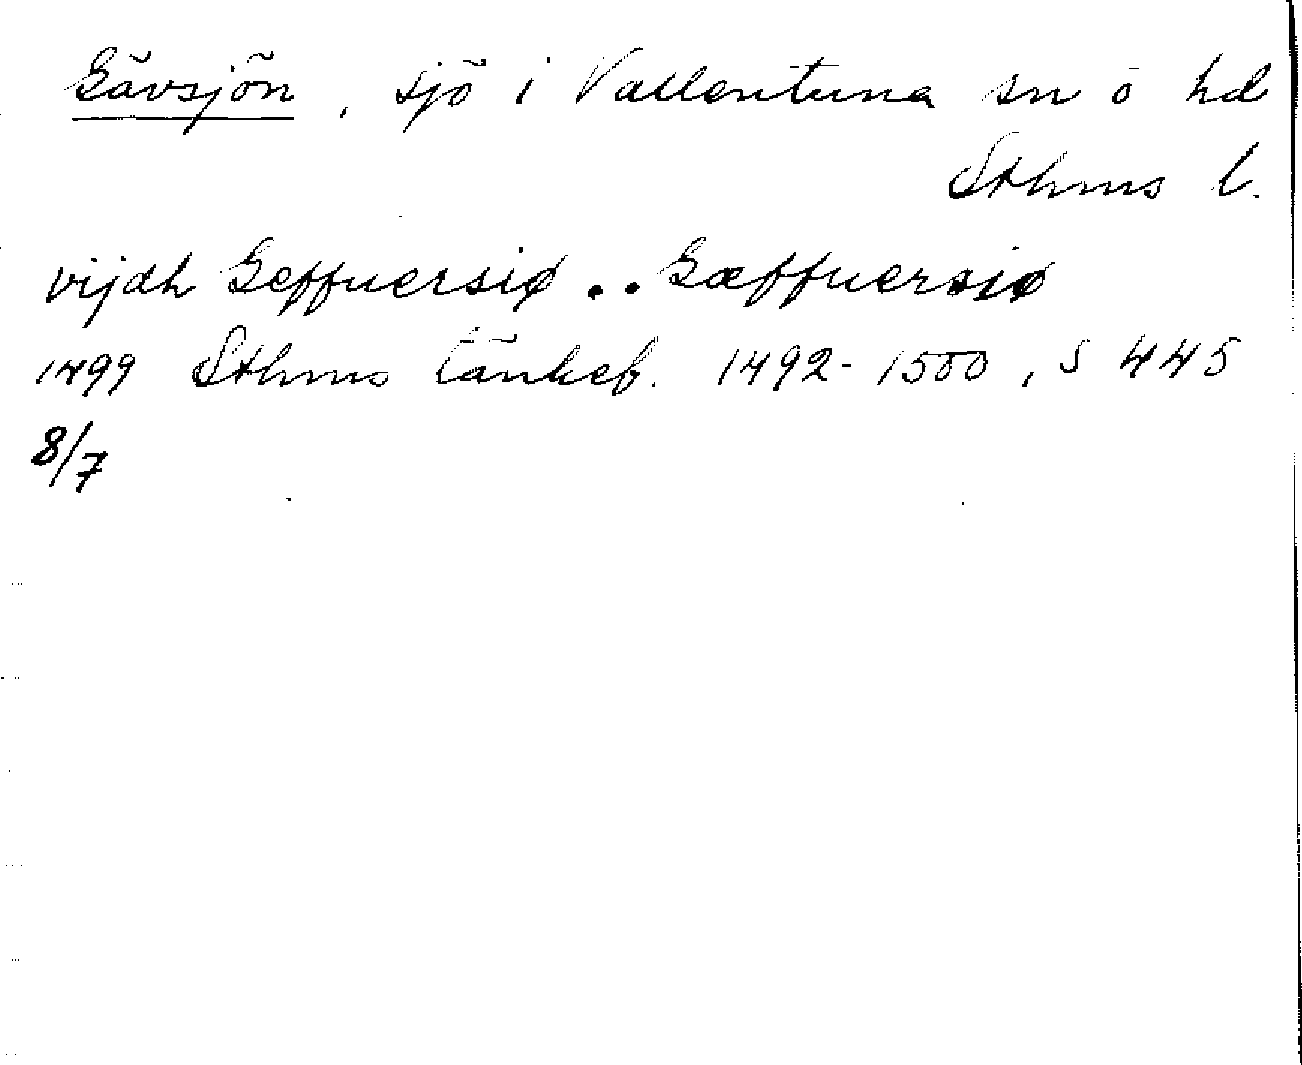 Gävsjön, sjö i Vallentuna sn o hd
Sthms l.
vijdh Geffuersiø .. Gæffuersiø
1499 Sthms tänkeb. 1492-1500, s 445
8/7